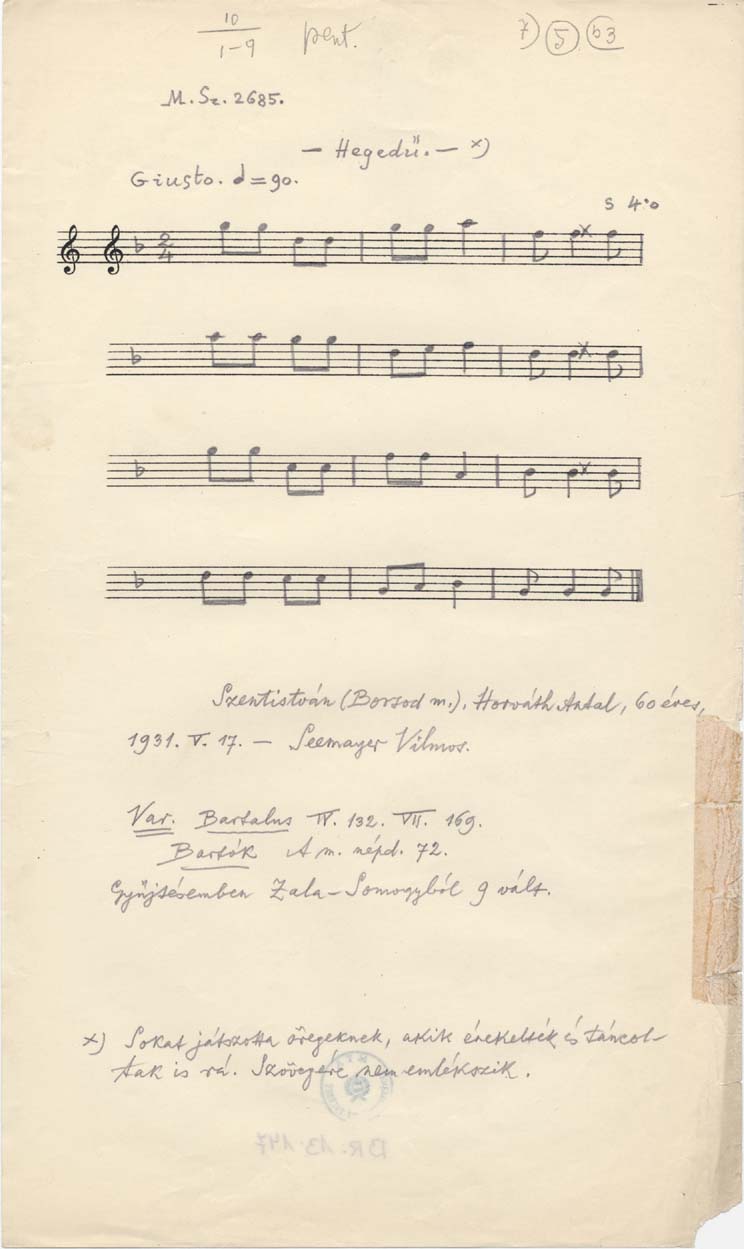 10
1-9 pent. 7) 5 b3
M. Sz. 2685.
– Hegedű. – x)
Giusto. = 90.
S 4·0
2
4
Szentistván (Borsod m.), Horváth Antal, 60 éves,
1931. V. 17. – Seemayer Vilmos.
Var. Bartalus IV. 132. VII. 169.
Bartók A m. népd. 72.
Gyűjtésemben Zala-Somogyból 9 vált.
x) Sokat játszotta öregeknek, akik énekelték és táncol-
tak is rá. Szövegére nem emlékszik.
BR. 13.147